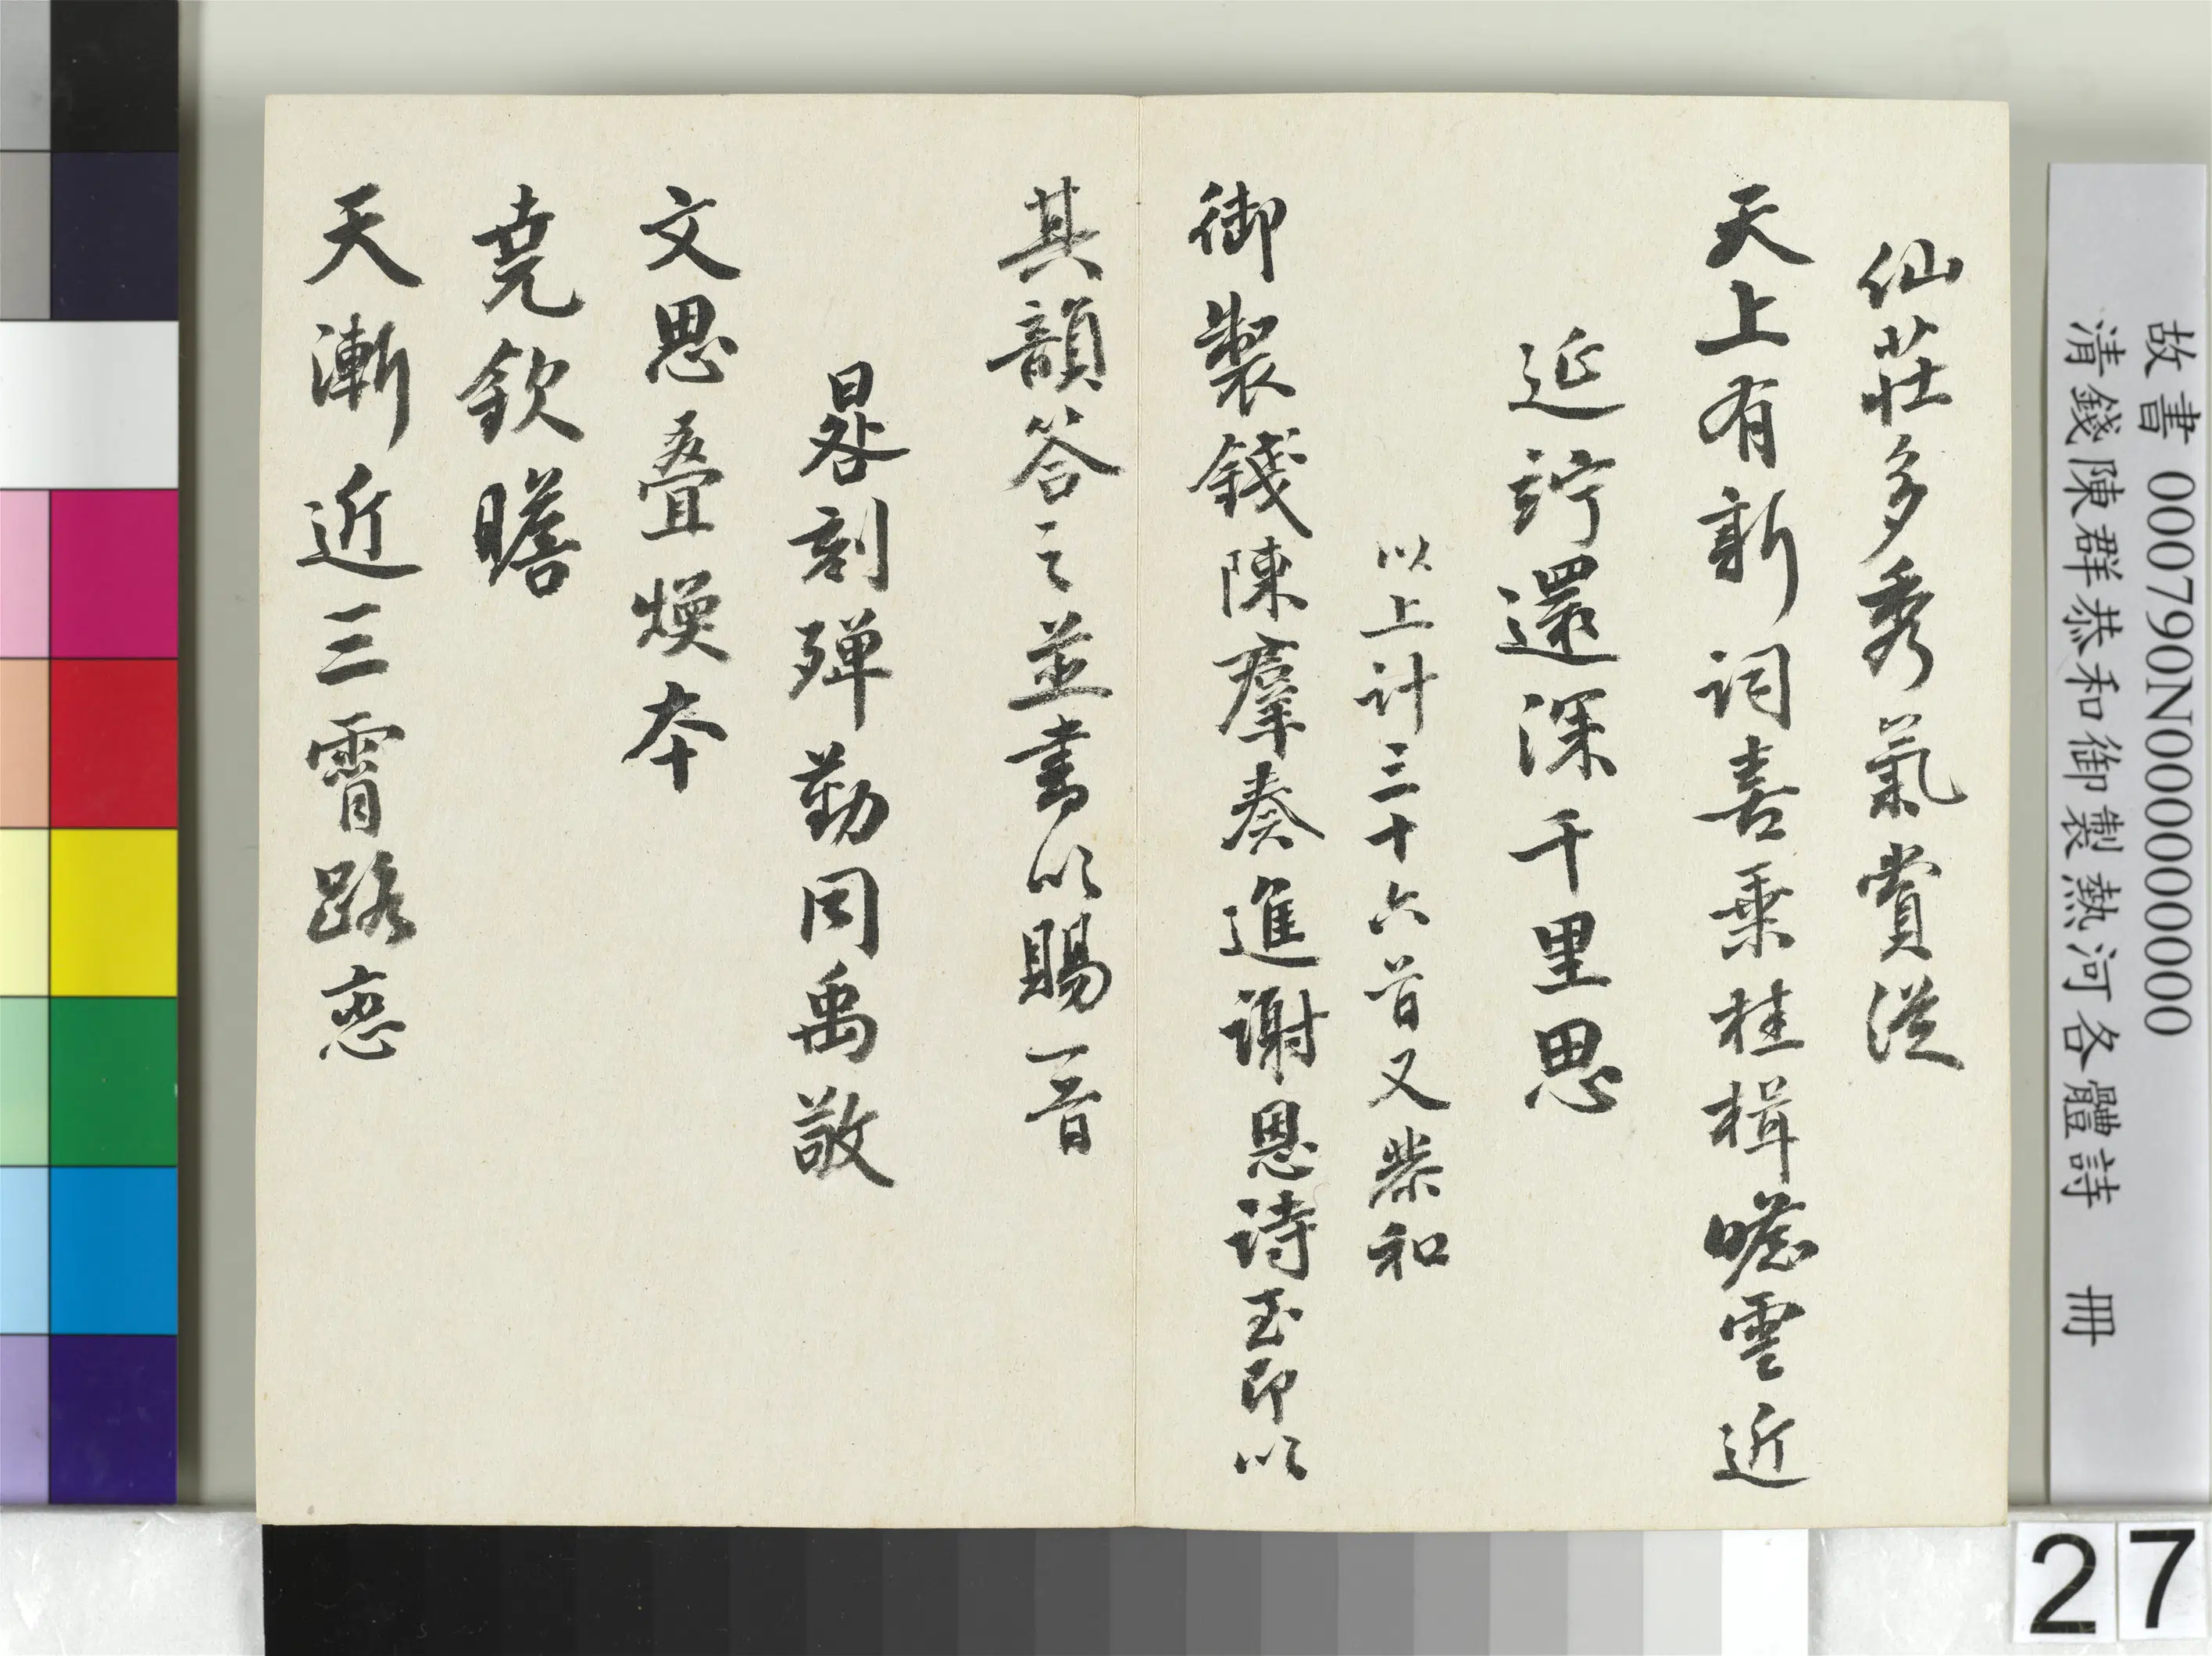 故書000790N000000000
清錢陳群恭和御製熱河各體詩 冊
仙莊多秀氣賞從
天上有新詞喜乗桂楫瞻雲近
延竚還深千里思
以上計三十六首又恭和
御製錢陳羣奏進謝恩诗至即以
其韻答之並書以賜一首
晷刻殫勤同禹敬
文思叠煥夲
堯欽瞻
天漸近三霄路恋
27